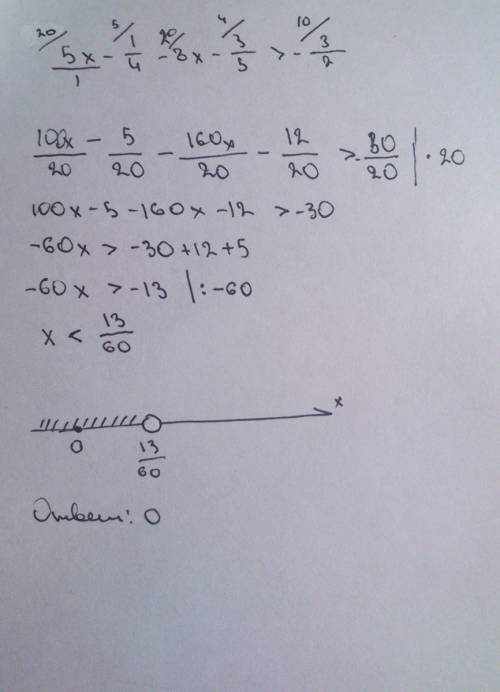 20/ 5x/1 - 5/ 1/4 - 20/ 8x - 4/ 3/5 > - 10/ 3/2
100x/20 - 5/20 - 160x/20 - 12/20 > - 30/20 | · 20
100x - 5 - 160x - 12 > -30
-60x > -30 + 12 + 5
-60x > -13 | : -60
x < 13/60
x
0 13/60
Ответ: 0